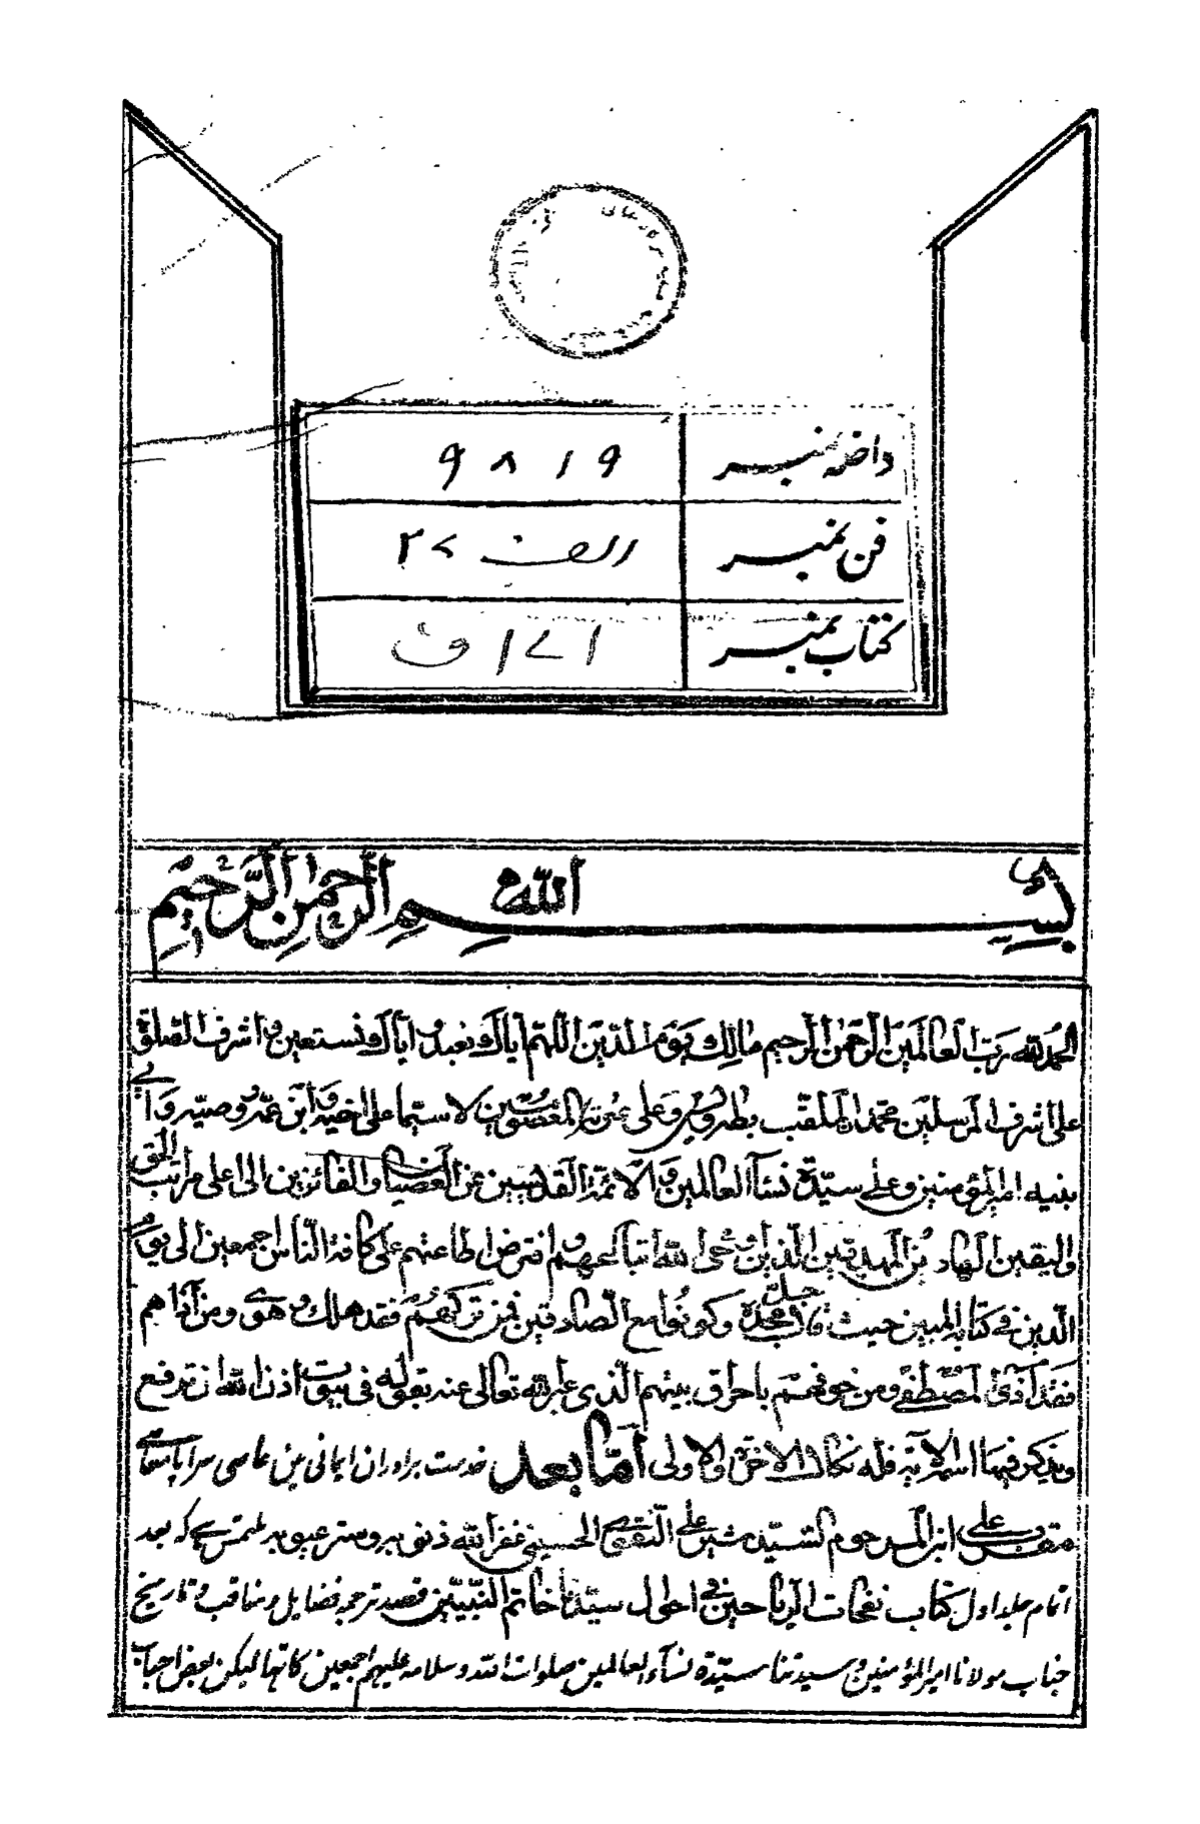 داخلہ نمبر ۹۸۱۹
فن نمبر الف ۲۷
کتاب نمبر
بسم الله الرحمن الرحيم
الحمد لله رب العالمين الرحمن الرحيم مالك يوم الدين اللهم اياك نعبد واياك نستعين واشرف الصلوة
على اشرف المرسلين محمد الملقب بطه ويس وعلى عترته المعصومين لا سيما على اخيه وابن عمه ووصيه وابي
بنيه امير المؤمنين وعلى سيدة نسآء العالمين والائمة القديسين عن والفائزين الى اعلى مراتب الحق
واليقين الهادين المهديين الذين وحى الله اتباعهم وافترض اطاعتهم على كافة الناس اجمعين الى يوم
الدين في كتابه المبين حيث قال جل مجده وكونوا مع الصادقين فمن تركهم فقد هلك وهوى ومن آذاهم
فقد آذى المصطفى ومن خوفهم باحراق بيتهم الذي عبر الله تعالى عنه بقوله في بيوت اذن الله ان ترفع
ويذكر فيها اسمه الاية فله نكال الاخرة والاولى اما بعد خدمت برادران ايمانى مين عاصى سراپا معاصى
مقرب على ابن المرحوم السيد شير على النقوى الحسينى غفر الله ذنوبه وستر عيوبه ملتمس ہے کہ بعد
اتمام جلد اول کتاب نفحات الرياحين في احوال سيدنا خاتم النبيين قصد ترجمہ فضايل ومناقب وتاريخ
جناب مولانا امير المؤمنين و سيدتنا سيدة نسآء العالمين صلوات الله وسلامه عليهم اجمعين کا تھا لیکن بعض احباب